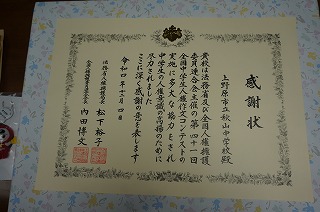 感謝状
上野原市立秋山中学校殿
貴校は法務省及び全国人権擁護
委員連合会主催の第四十一回
全国中学生人権作文コンテストの
実施に多大な協力をされ
中学生の人権意識の高揚のために
尽力されました
ここに深く感謝の意を表します
令和四年十二月四日
法務省人権擁護局長
松下裕子
全国人権擁護委員連合会長
内田博文